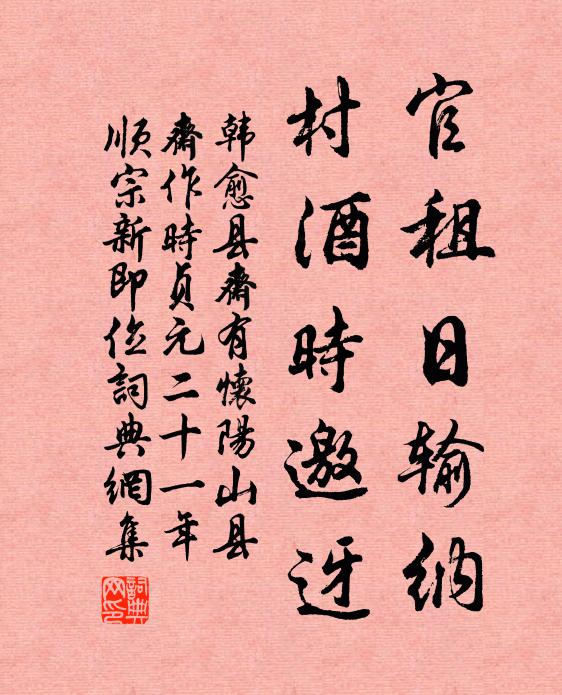 官租日输纳
村酒時邀迓
韩愈县齋有懷陽山县
齋作時貞元二十一年
順宗新即位詞典網集
詞典网印